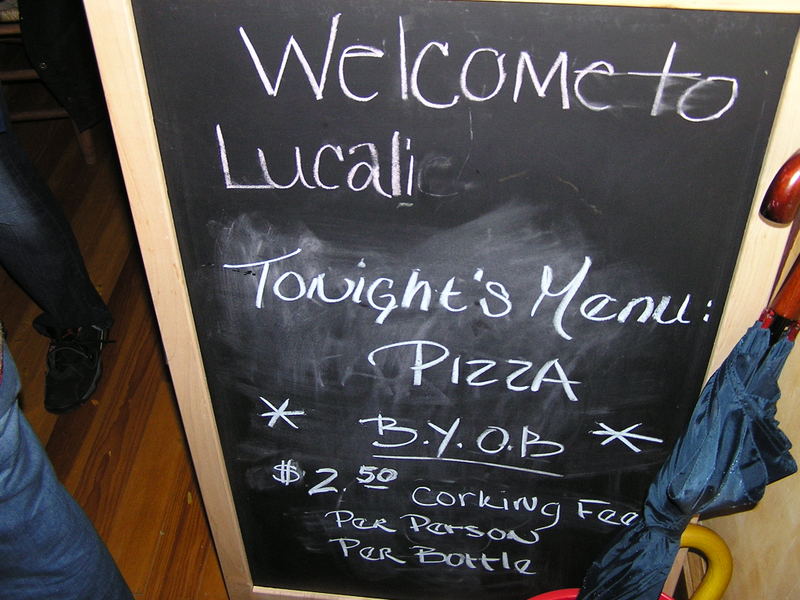 Welcome to
Lucali
Tonight's Menu:
Pizza
* B.Y.O.B *
$2.50 Corking Fee
Per Person
Per Bottle